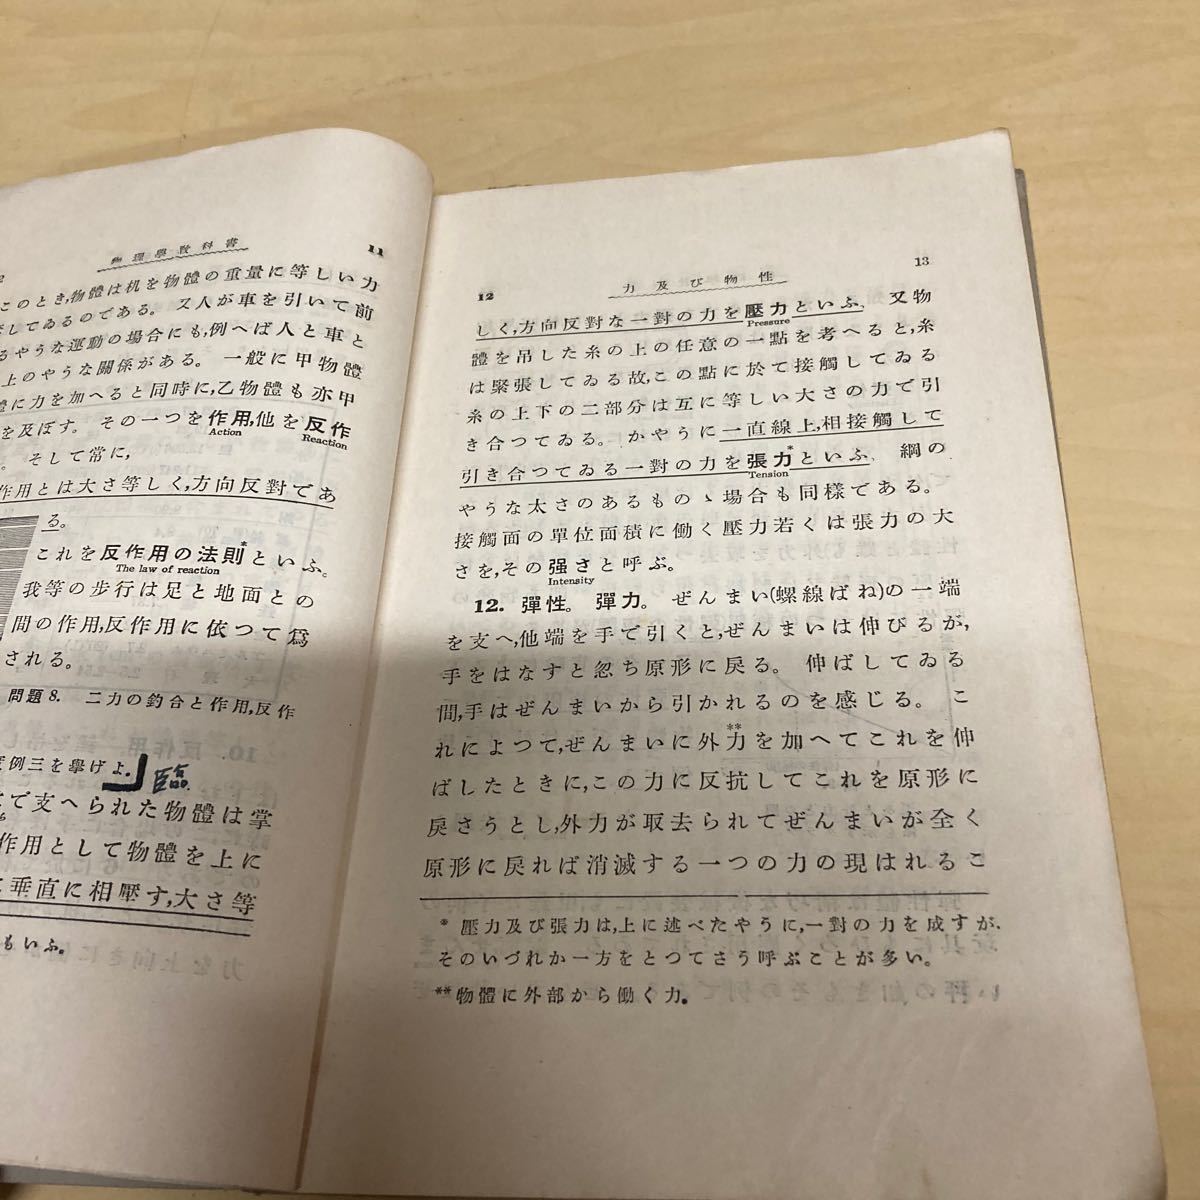 物理學敎科書
11
このとき,物體は机を物體の重量に等しい力
してゐるのである。 又人が車を引いて前
るやうな運動の場合にも,例へば人と車と
上のやうな關係がある。 一般に甲物體
體に力を加へると同時に,乙物體も亦甲
を及ぼす。 その一つを作用,他を反作
Action Reaction
。 そして常に,
作用とは大さ等しく,方向反對であ
る。
これを反作用の法則*といふ。
The law of reaction
我等の步行は足と地面との
間の作用,反作用に依つて爲
される。
問題8. 二力の釣合と作用,反作
例三を擧げよ。
臨
で支へられた物體は掌
作用として物體を上に
垂直に相壓す,大さ等
もいふ。
12
力及び物性
13
しく,方向反對な一對の力を壓力といふ。 又物
Pressure
體を吊した糸の上の任意の一點を考へると,糸
は緊張してゐる故,この點に於て接觸してゐる
糸の上下の二部分は互に等しい大さの力で引
き合つてゐる。 かやうに一直線上,相接觸して
引き合つてゐる一對の力を張力*といふ。 綱の
Tension
やうな太さのあるものゝ場合も同樣である。
接觸面の單位面積に働く壓力若くは張力の大
さを,その强さと呼ぶ。
Intensity
12. 彈性。 彈力。 ぜんまい(螺線ばね)の一端
を支へ,他端を手で引くと,ぜんまいは伸びるが,
手をはなすと忽ち原形に戾る。 伸ばしてゐる
間,手はぜんまいから引かれるのを感じる。 こ
れによつて,ぜんまいに外力**を加へてこれを伸
ばしたときに,この力に反抗してこれを原形に
戾さうとし,外力が取去られてぜんまいが全く
原形に戾れば消滅する一つの力の現はれるこ
* 壓力及び張力は,上に述べたやうに,一對の力を成すが,
そのいづれか一方をとつてさう呼ぶことが多い。
** 物體に外部から働く力。